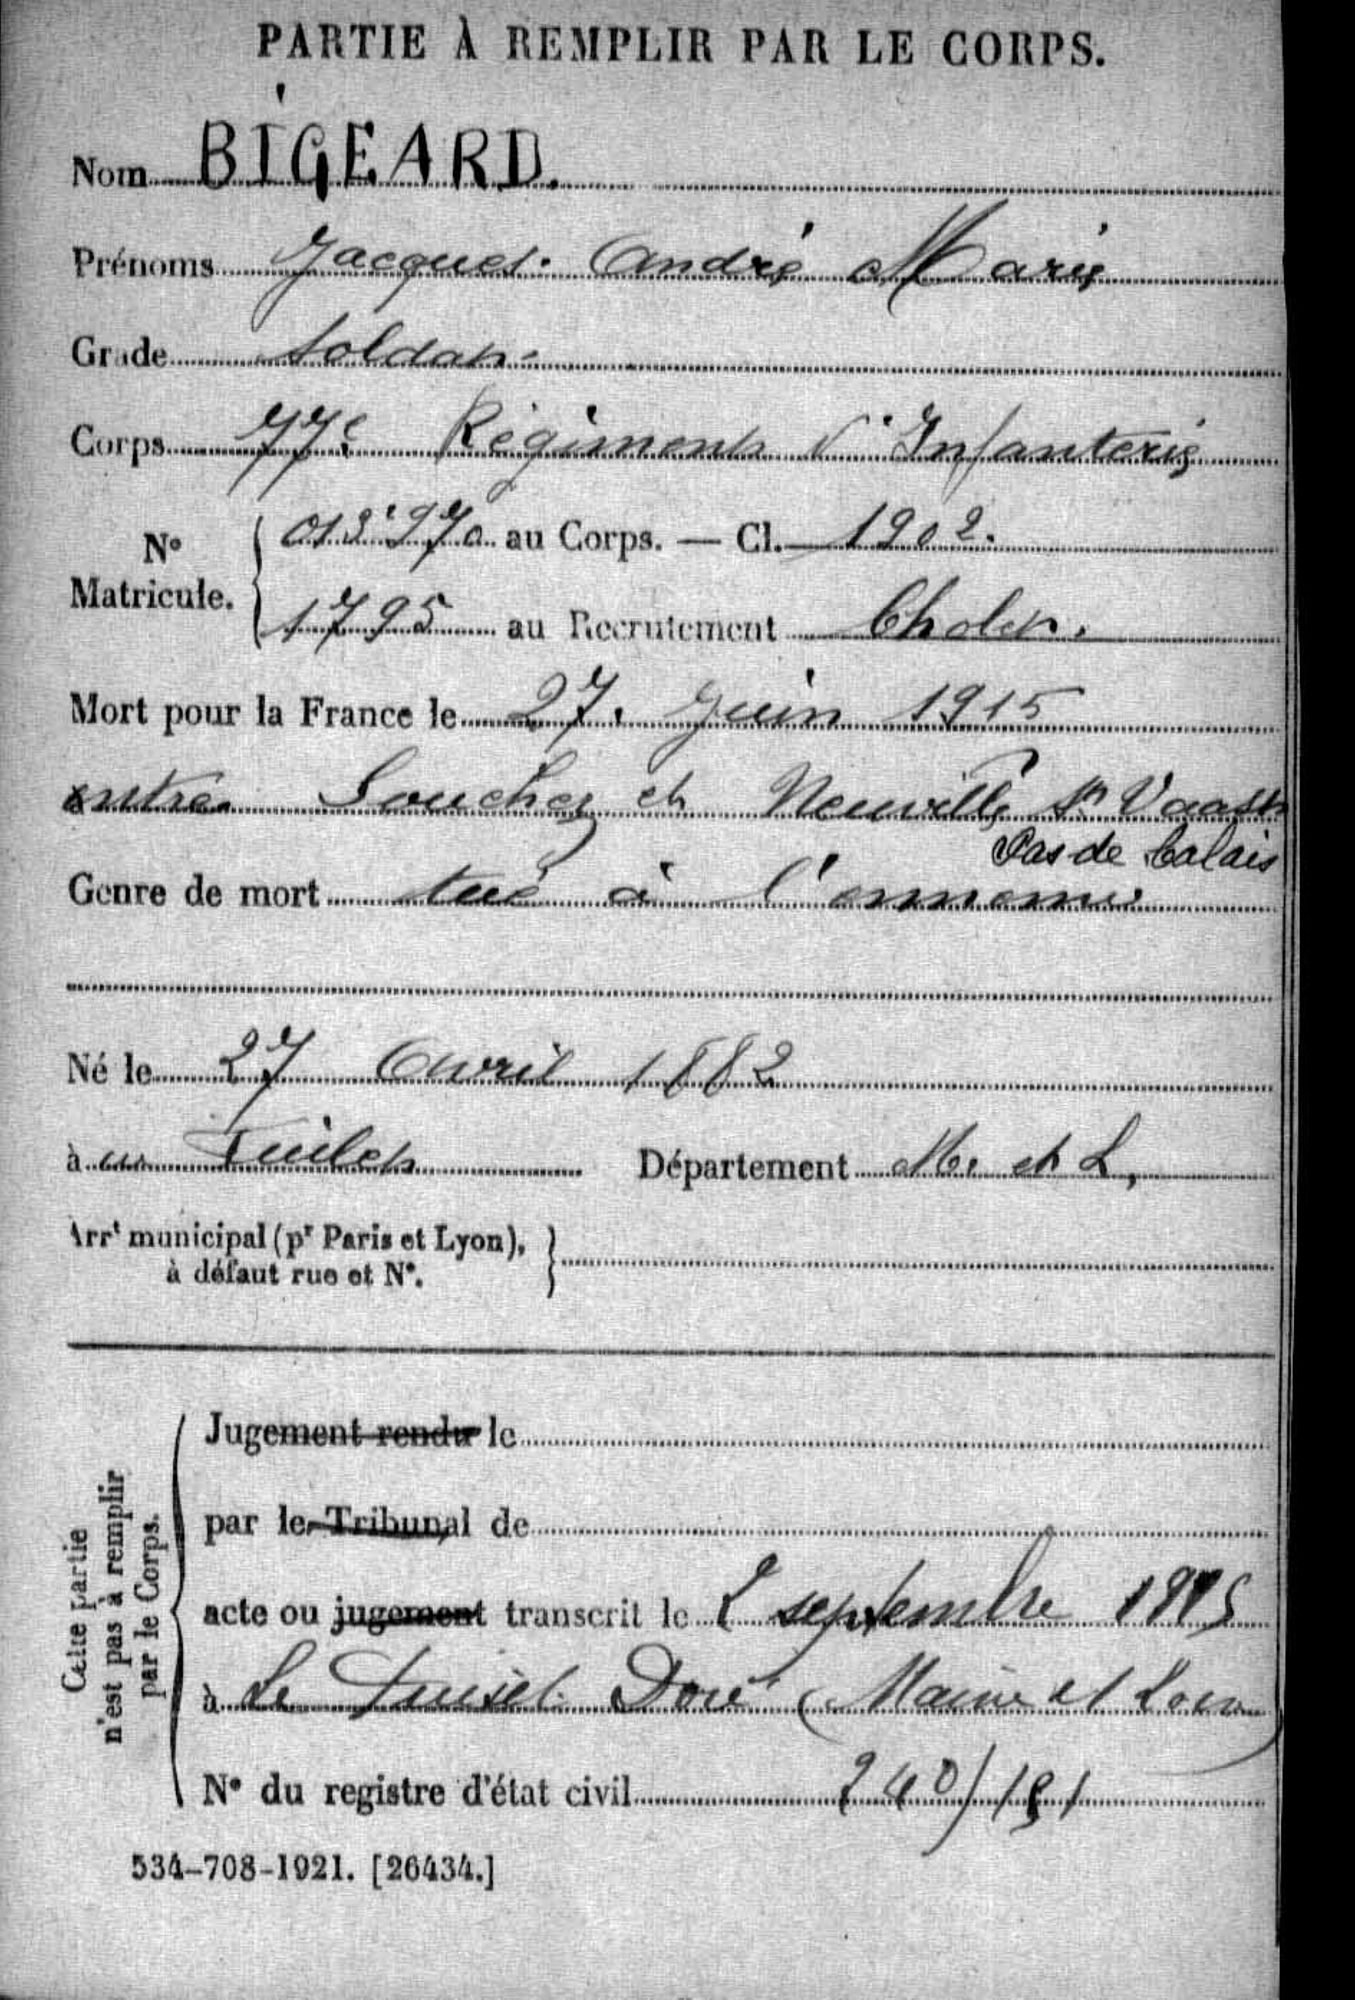 PARTIE À REMPLIR PAR LE CORPS.
Nom BIGEARD.
Prénoms Jacques André Marie
Grade Soldat
Corps 77e Régiment d'Infanterie
No Matricule. { 013970 au Corps. — Cl. 1902.
1795 au Recrutement Cholet.
Mort pour la France le 27 Juin 1915
entre Souchez et Neuville St Vaast
Pas de Calais
Genre de mort tué à l'ennemi
Né le 27 Avril 1882
à Département M. et L.
Arrt municipal (pr Paris et Lyon),
à défaut rue et No.
Cette partie
n'est pas à remplir
par le Corps.
Jugement rendu le
par le Tribunal de
acte ou jugement transcrit le septembre 1915
à Le Doré (Maine et Loire)
No du registre d'état civil 240/191
534-708-1921. [26434.]